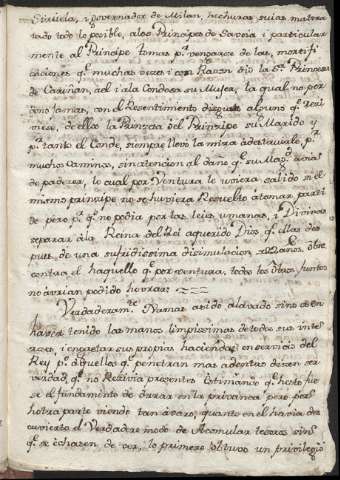 Sirvela, i governador de Milan, hechuras suias maltra
tado todo lo posible, a los Principes de Savoia i particular
mente al Principe Tomas pª vengarse de las mortifi
caciones qᵉ muchas veces i con Razon dio la Sᵃ Princesa
de Cariñan, a el i a la Condesa su Mujer, la qual no per
dono jamas, con el Resentimiento
de ellos la Princesa del Principe su Marido y
pʳ tanto el Conde, siempre llevo la mira a derribarle pʳ
muchos Caminos, sin atencion al daño qᵉ su Magᵈ avia
de padecer, lo cual por Ventura le tuviera salido si el
mismo principe no se huviera Resuelto a tomar parti
do pero pʳ qᵉ no podia por las leies umanas, i Divinas
separar a la Reina del Rei a querido Dios qᵉ ellas des
pues, de una sufridissima disimulacion años, obre
contra el haquello qᵉ por ventura, todos los otros juntos
no avrian podido hovrar:
Verdaderamᵗᵉ Numar a sido alavado sino de en
haver tenido las manos limpissimas de todos sus inte
reses, i engastar sus propias haciendas en servicio del
Rey pᵒ aquellos qᵉ penetran mas adentro dicen con
verdad, qᵉ no Recivia presentes Estimando qᵉ hesto fue
se el fundamento de durar en la privanza pero por
hotra parte viendo tan avaro, quanto en el havia des
cuvierto el Verdadero modo de Acomular tesoros sin
qᵉ se echasen de ver, lo primero obtuvo un privilegio